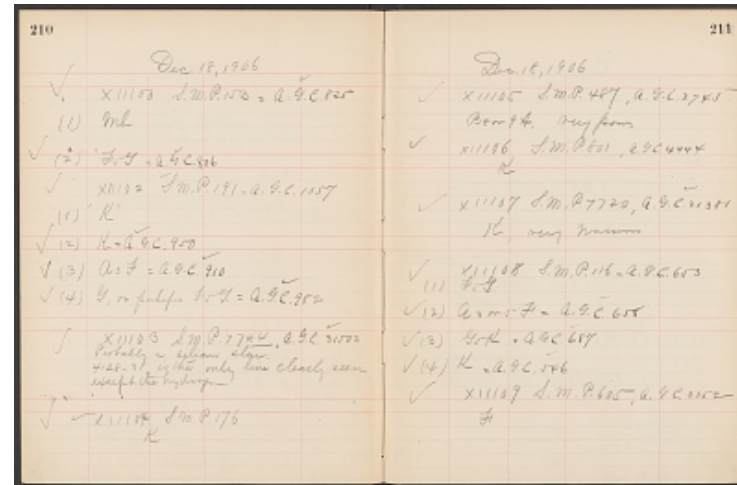 210
Dec 18, 1906
S.M.P. 153 = A.G.C. 825
(1)
(2) F or G = A.G.C. 806
X11102 S.M.P. 191 = A.G.C. 1057
(1) K
(2) K = A.G.C. 950
(3) A or F = A.G.C. 910
(4) G, or F or G = A.G.C. 952
X11103 S.M.P. 7744, A.G.C. 31502
Probably a star.
4128-31 is the only line clearly seen
except the hydrogen
X11104 S.M.P. 176
K
211
Dec. 18, 1906
X11105 S.M.P. 487, A.G.C. 2745
B or 9 A. very
X11106 S.M.P. 801, A.G.C. 4444
K
X11107 S.M.P. 7720, A.G.C. 31381
K, very narrow
X11108 S.M.P. 116 = A.G.C. 653
(1) F or G
(2) = A.G.C. 658
(3) G or K = A.G.C. 687
(4) K = A.G.C. 546
X11109 S.M.P. 605, A.G.C. 3352
F